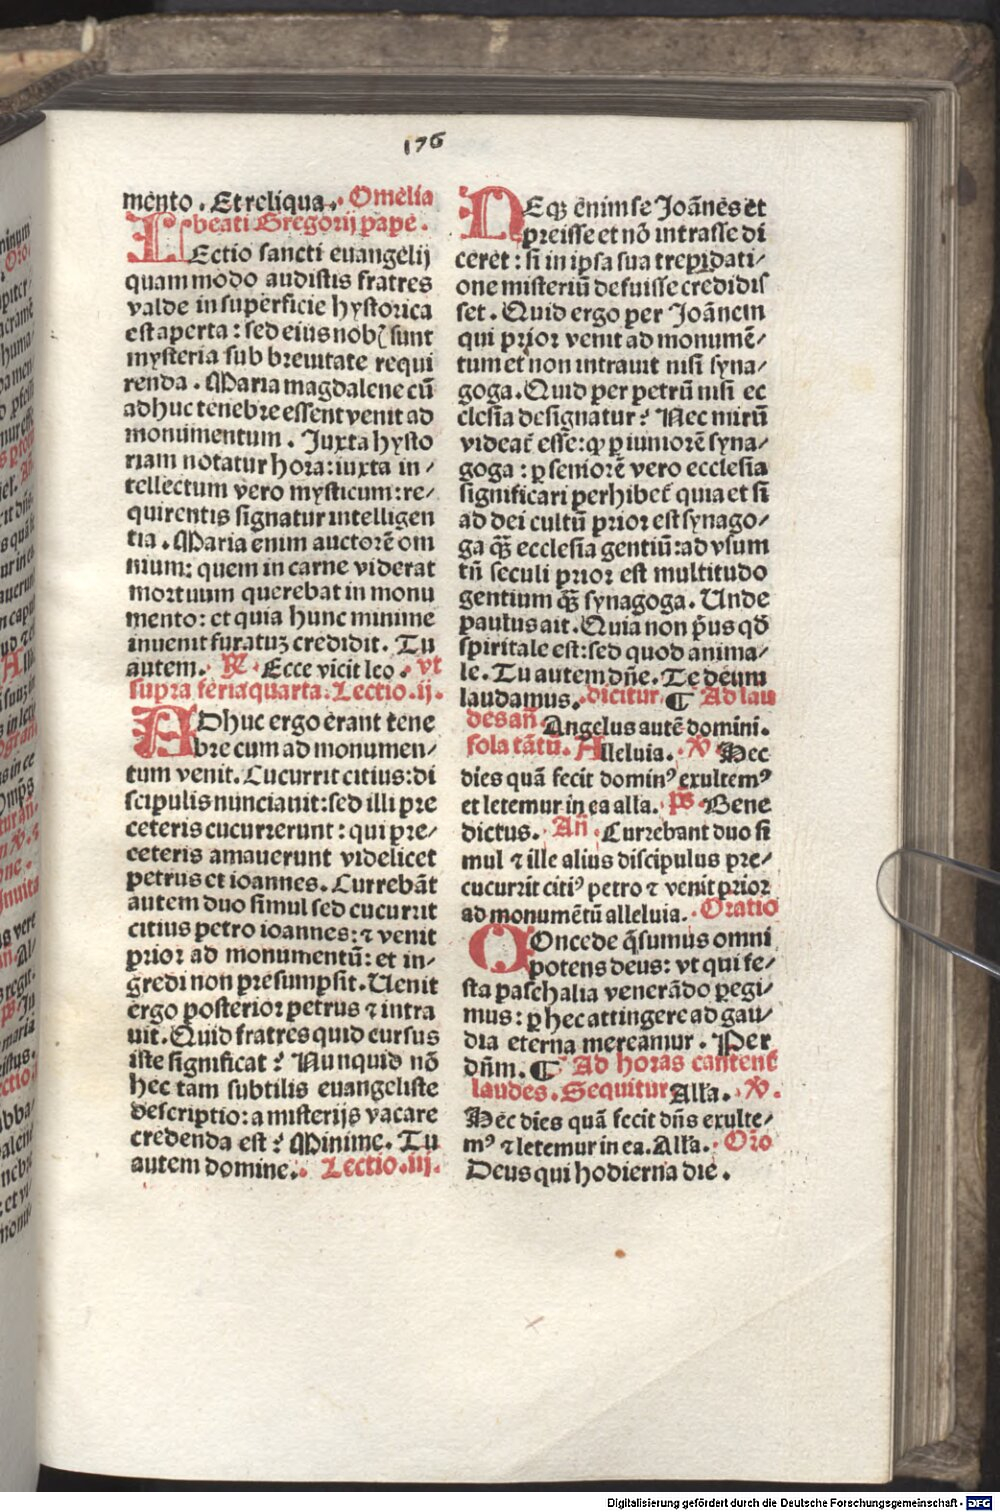 176
mento . Et reliqua. Omelia
beati Gregorij pape .
LEctio sancti euangelij
quam modo audistis fratres
valde in superficie hystorica
est aperta : sed eius nobꝭ sunt
mysteria sub breuitate requi
renda . Maria magdalene cū
adhuc tenebre essent venit ad
monumentum . Juxta hysto
riam notatur hora: iuxta in⸗
tellectum vero mysticum: re⸗
quirentis signatur intelligen
tia . Maria enim auctorē om
nium: quem in carne viderat
mortuum querebat in monu
mento: et quia hunc minime
inuenit furatuꝫ credidit . Tu
autem . ℟ . Ecce vicit leo . vt
supra feria quarta. Lectio .ij.
ADhuc ergo erant tene
bre cum ad monumen⸗
tum venit. Cucurrit citius: di
scipulis nunciauit: sed illi pre
ceteris cucurrerunt : qui pre⸗
ceteris amauerunt videlicet
petrus et ioannes. Currebāt
autem duo simul sed cucurrit
citius petro ioannes: ⁊ venit
prior ad monumentū: et in⸗
gredi non presumpsit. Uenit
ergo posterior petrus ⁊ intra
uit. Quid fratres quid cursus
iste significat ? Nunquid nō
hec tam subtilis euangeliste
descriptio: a misterijs vacare
credenda est ? Minime. Tu
autem domine. Lectio .iij.
NEqꝫ enim se Joānes et
preisse et nō intrasse di
ceret : si in ipsa sua trepidati⸗
one misteriū defuisse credidis
set . Quid ergo per Joānem
qui prior venit ad monumē⸗
tum et non intrauit nisi syna⸗
goga. Quid per petrū nisi ec
clesia designatur ? Nec mirū
videat̄ esse: ꝙ ꝑ iuniorē syna⸗
goga : ꝑ seniorē vero ecclesia
significari perhibet̄ quia et si
ad dei cultū prior est synago⸗
ga q̄ꝫ ecclesia gentiū: ad vsum
tn̄ seculi prior est multitudo
gentium q̄ꝫ synagoga. Unde
paulus ait. Quia non p̄us qd̄
spiritale est: sed quod anima⸗
le. Tu autem dn̄e. Te deum
laudamus. dicitur. ¶ Ad lau
des an̄. Angelus autē domini.
sola tātū. Alleluia. ℣ Hec
dies quā fecit domin⁹ exultem⁹
et letemur in ea alla. ps̄ Bene
dictus. An̄ . Currebant duo si
mul ⁊ ille alius discipulus pre⸗
cucurrit citi⁹ petro ⁊ venit prior
ad monumētū alleluia. Oratio
COncede q̄sumus omni
potens deus: vt qui fe⸗
sta paschalia venerādo ꝑegi⸗
mus: ꝑ hec attingere ad gau⸗
dia eterna mereamur . Per
dn̄m. ¶ Ad horas cantent̄
laudes. Sequitur Alla. ℣.
Hec dies quā fecit dn̄s exulte⸗
m⁹ ⁊ letemur in ea. Alla. Oro
Deus qui hodierna die .
Digitalisierung gefördert durch die Deutsche Forschungsgemeinschaft - DFG